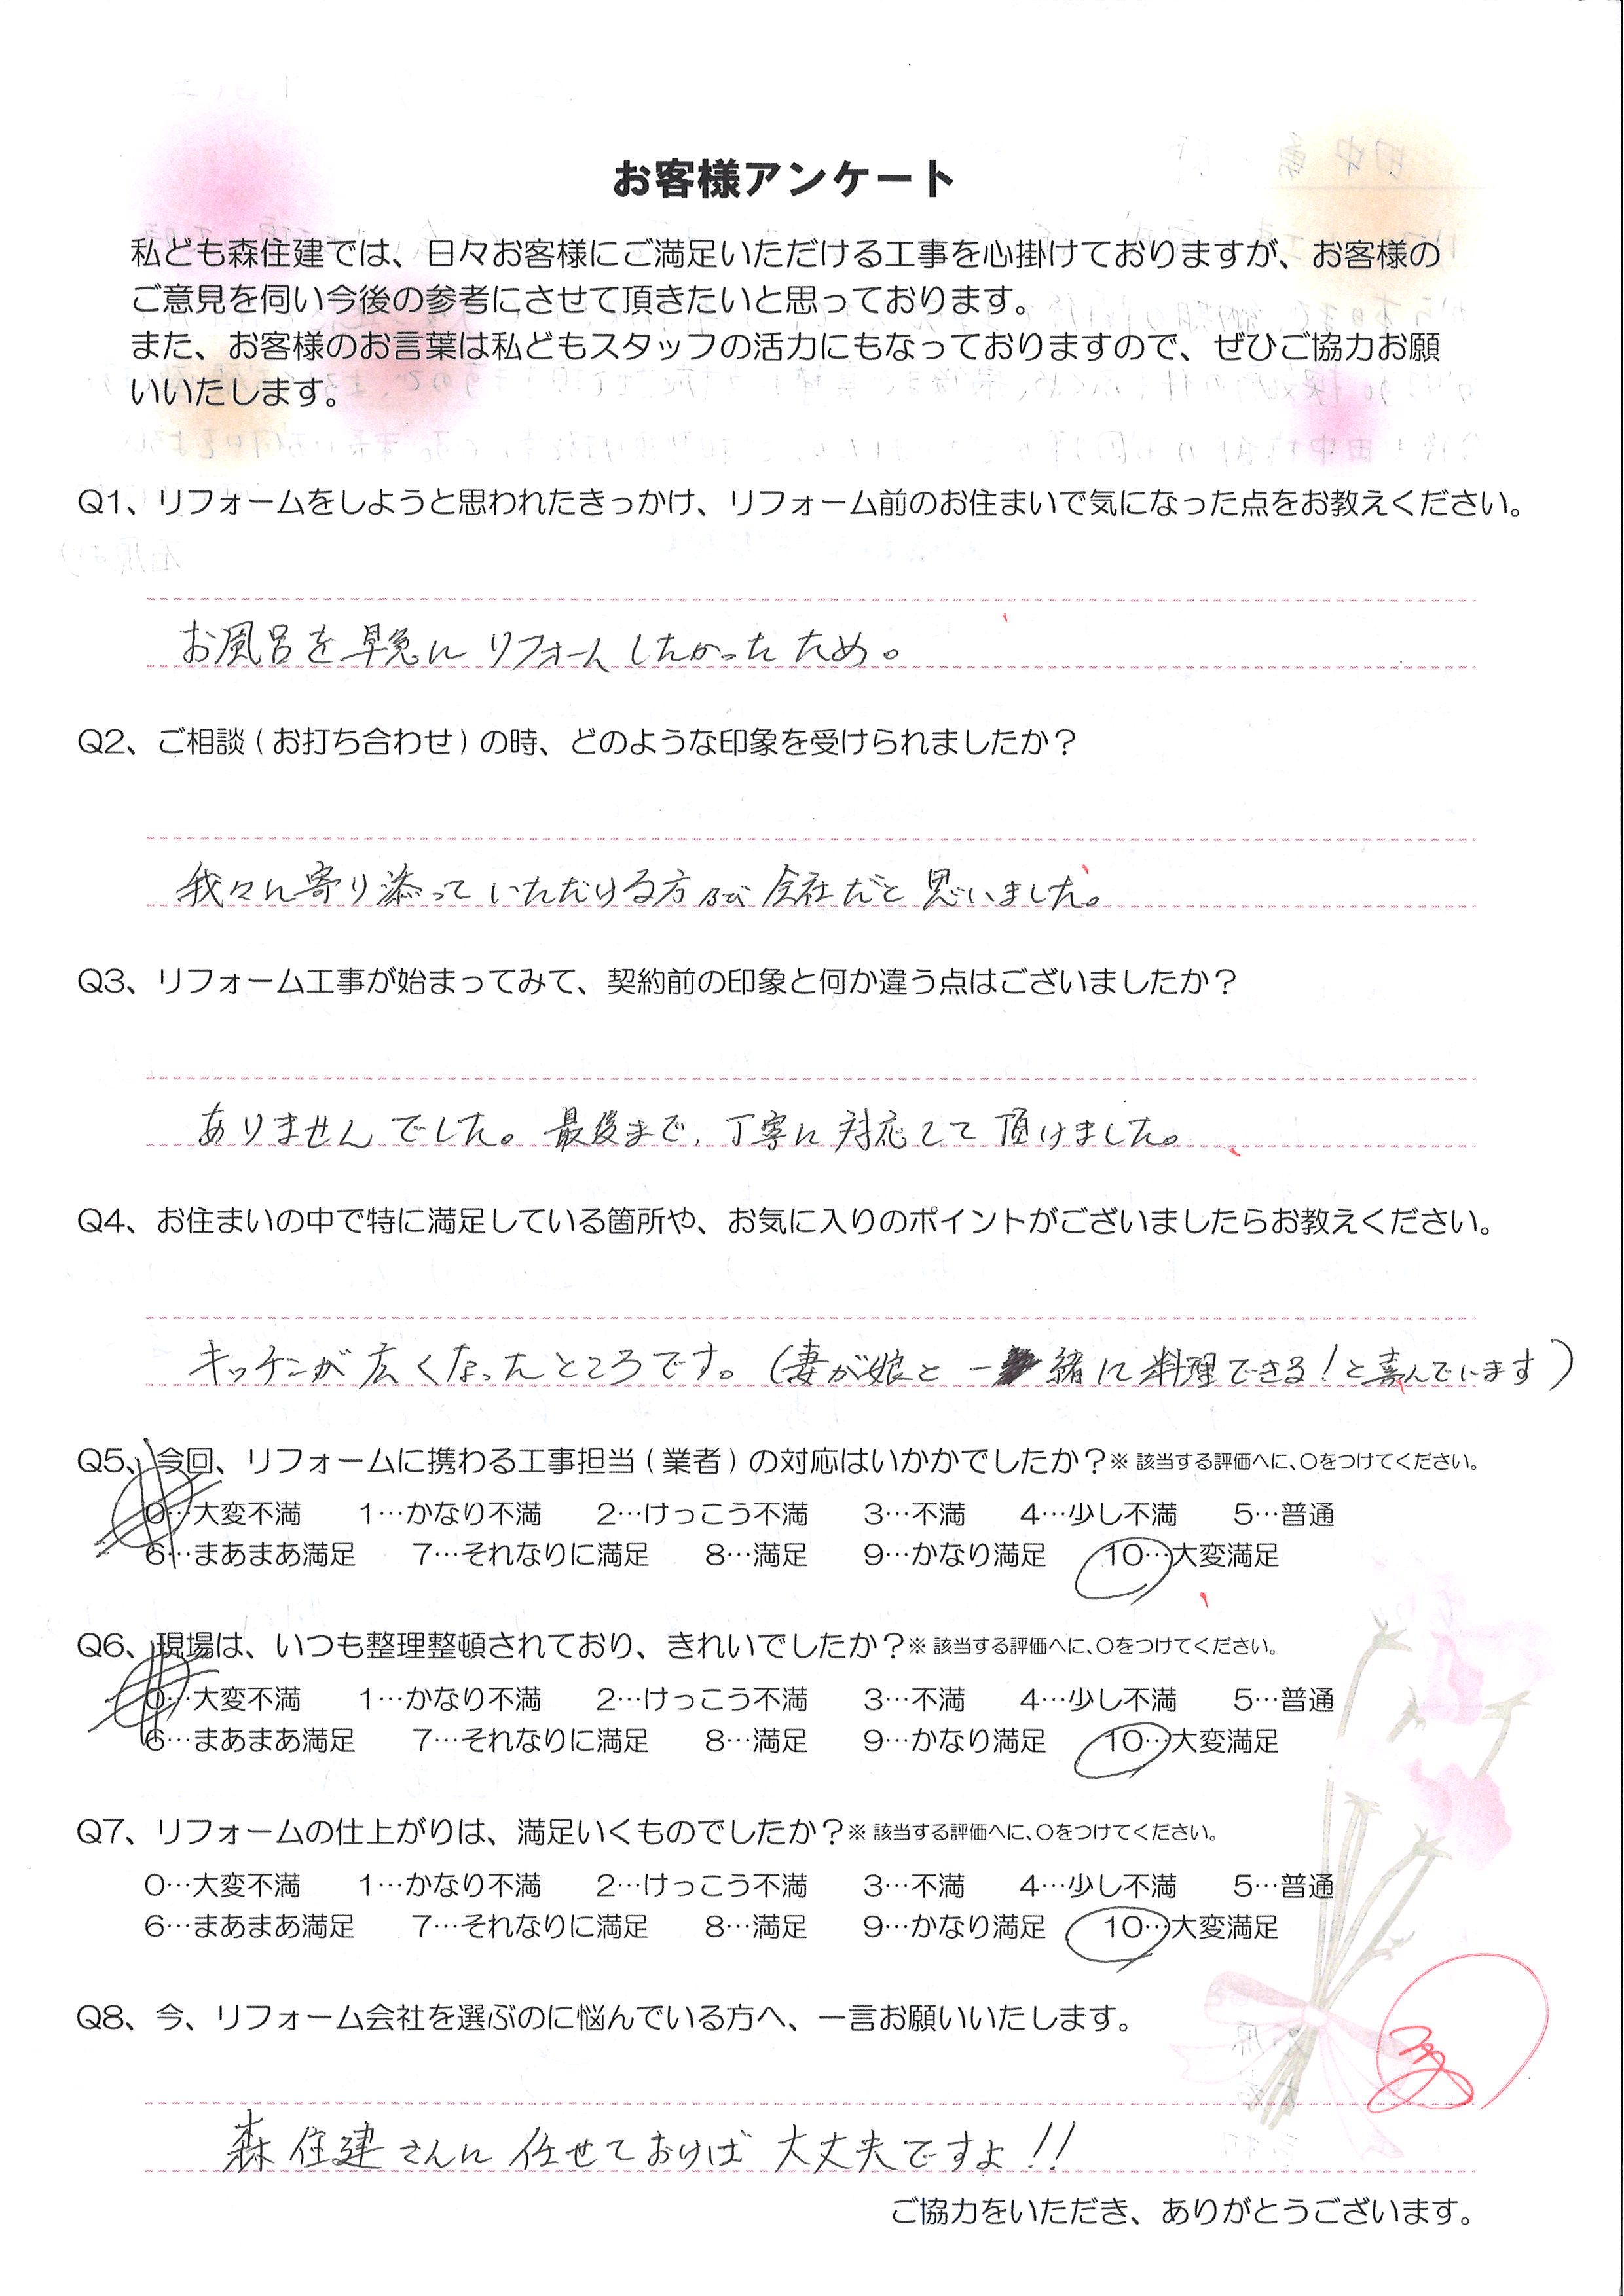 お客様アンケート
私ども森住建では、日々お客様にご満足いただける工事を心掛けておりますが、お客様の
ご意見を伺い今後の参考にさせて頂きたいと思っております。
また、お客様のお言葉は私どもスタッフの活力にもなっておりますので、ぜひご協力お願
いいたします。
Q1、リフォームをしようと思われたきっかけ、リフォーム前のお住まいで気になった点をお教えください。
お風呂を早急にリフォームしたかったため。
Q2、ご相談(お打ち合わせ)の時、どのような印象を受けられましたか?
我々に寄り添っていただける方及び会社だと思いました。
Q3、リフォーム工事が始まってみて、契約前の印象と何か違う点はございましたか?
ありませんでした。最後まで、丁寧に対応して頂けました。
Q4、お住まいの中で特に満足している箇所や、お気に入りのポイントがございましたらお教えください。
キッチンが広くなったところです。(妻が娘と一緒に料理できる!と喜んでいます)
Q5、今回、リフォームに携わる工事担当(業者)の対応はいかかでしたか?※ 該当する評価へに、○をつけてください。
0…大変不満 1…かなり不満 2…けっこう不満 3…不満 4…少し不満 5…普通
6…まあまあ満足 7…それなりに満足 8…満足 9…かなり満足 10…大変満足
Q6、現場は、いつも整理整頓されており、きれいでしたか?※ 該当する評価へに、○をつけてください。
0…大変不満 1…かなり不満 2…けっこう不満 3…不満 4…少し不満 5…普通
6…まあまあ満足 7…それなりに満足 8…満足 9…かなり満足 10…大変満足
Q7、リフォームの仕上がりは、満足いくものでしたか?※ 該当する評価へに、○をつけてください。
0…大変不満 1…かなり不満 2…けっこう不満 3…不満 4…少し不満 5…普通
6…まあまあ満足 7…それなりに満足 8…満足 9…かなり満足 10…大変満足
Q8、今、リフォーム会社を選ぶのに悩んでいる方へ、一言お願いいたします。
森住建さんに任せておけば大丈夫ですよ!!
ご協力をいただき、ありがとうございます。